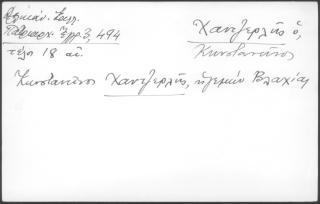 Πατριαρχ. Ἔγγρ. 3, 494
τέλη 18 αἰ.
Χαντζερλῆς ὁ,
Κωνσταντῖνος
Κωνσταντῖνος Χαντζερλῆς, ἡγεμὼν Βλαχίας